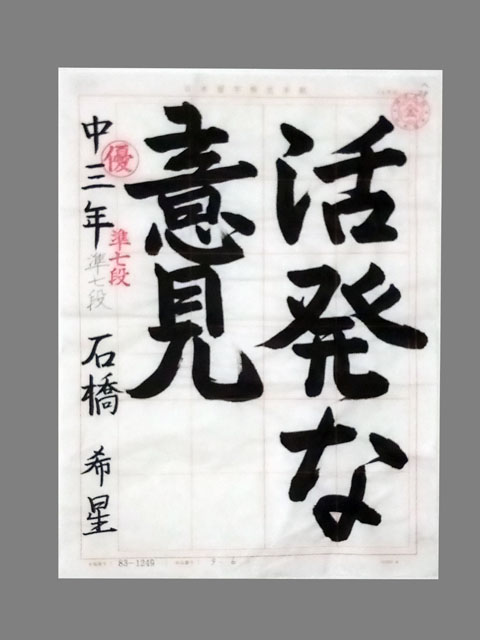 活発な
意見
優
中三年
準七段
準七段
石橋 希星
83-1249